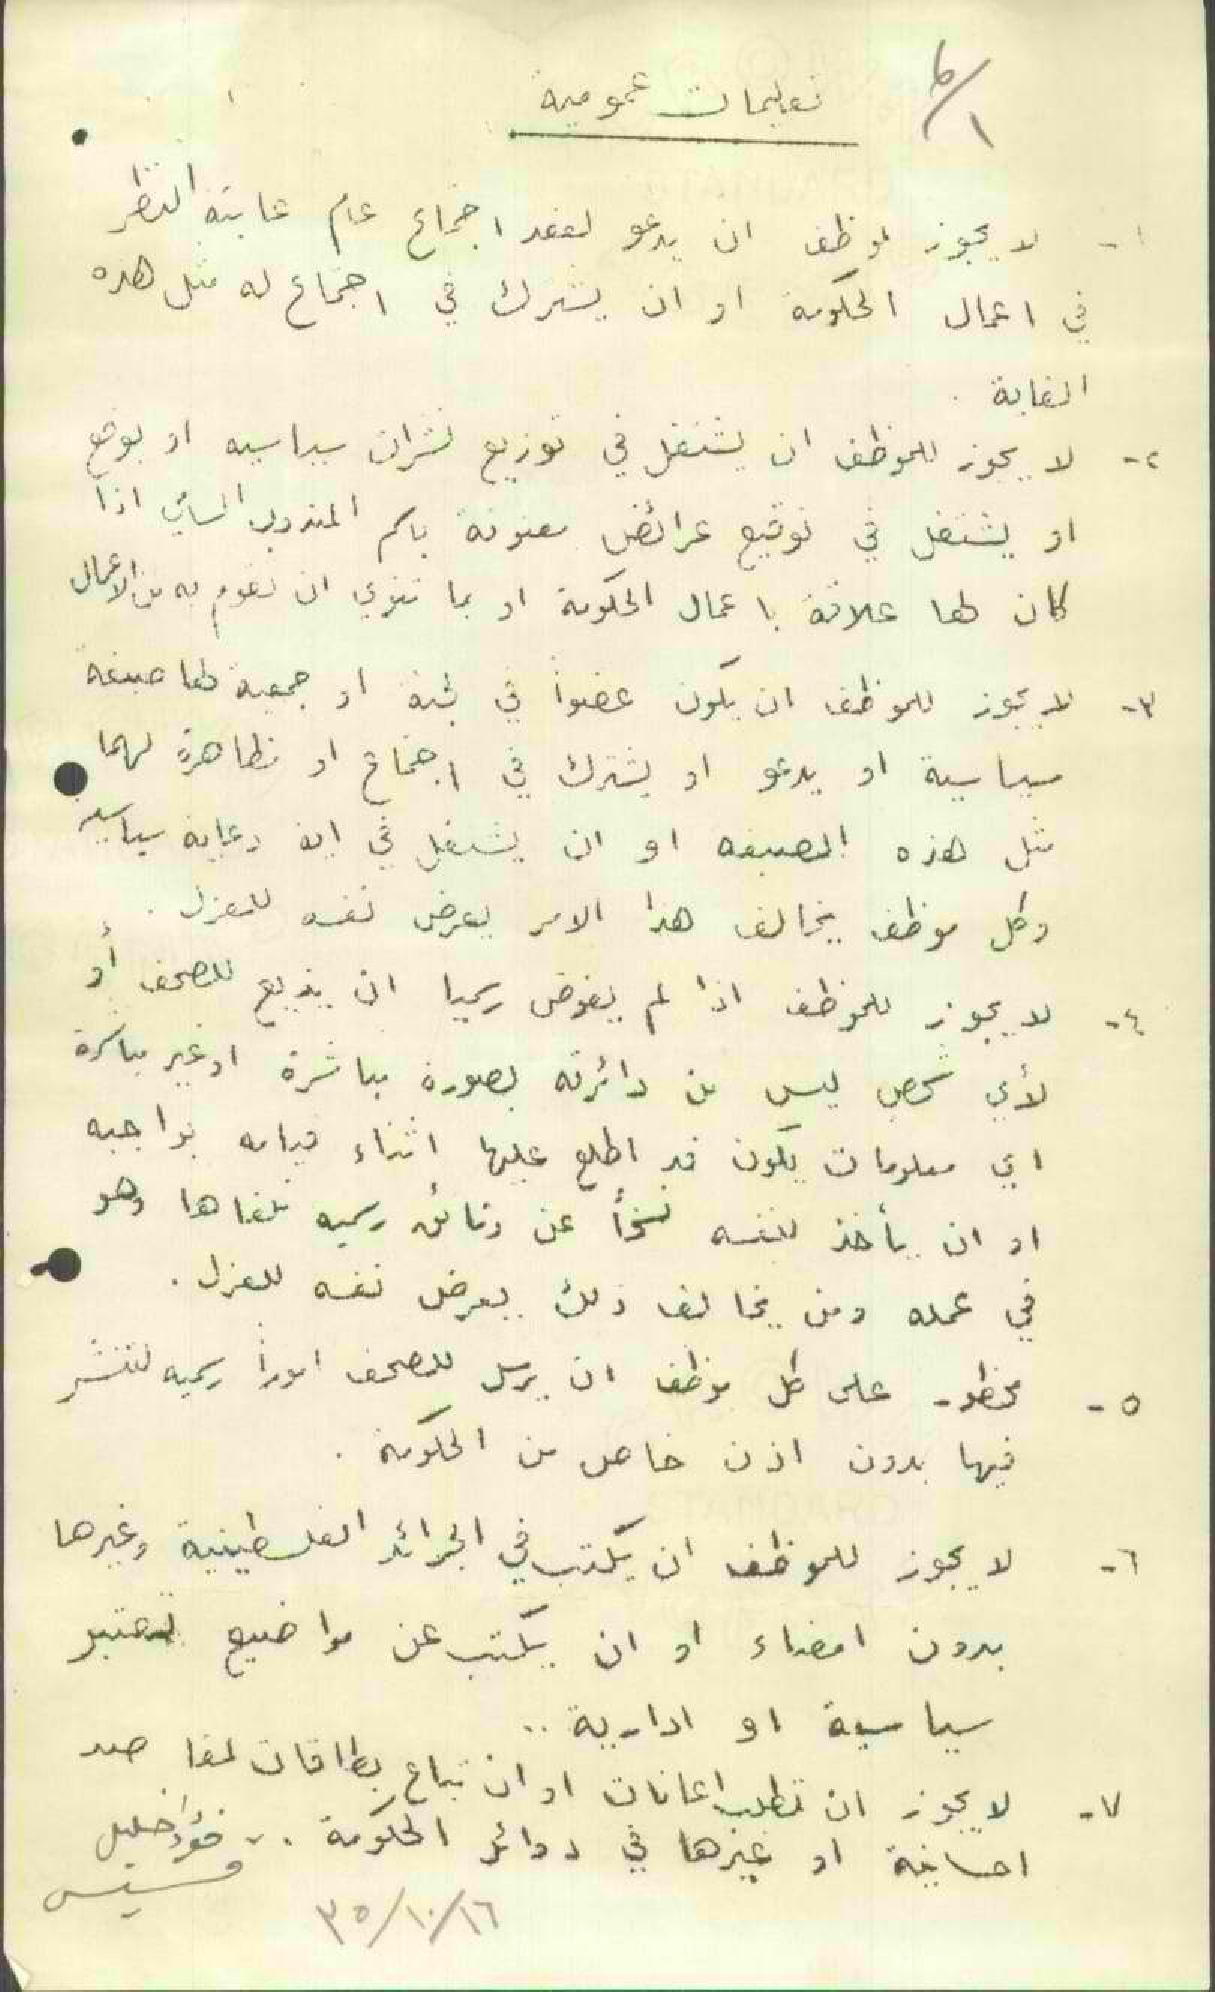 ٦/١
تعليمات عمومية
١- لا يجوز لموظف ان يدعو لعقد اجتماع عام غايته النظر
في اعمال الحكومة او ان يشترك في اجتماع له مثل هذه
الغاية .
٢- لا يجوز للموظف ان يشتغل في توزيع نشرات سياسيه او يوقع
او يشتغل في توقيع عرائض معنونة باسم المندوب السامي اذا
كان لها علاقة باعمال الحكومة او بما تنوي ان تقوم به من الاعمال
٣- لا يجوز للموظف ان يكون عضواً في لجنة او جمعية لها صبغة
سياسية او يدعو او يشترك في اجتماع او تظاهرة لهما
مثل هذه الصبغه او ان يشتغل في اية دعاية سياسيه
وكل موظف يخالف هذا الامر يعرض نفسه للعزل .
٤- لا يجوز للموظف اذا لم يفوض رسميا ان يذيع للصحف أو
لأي شخص ليس من دائرته بصورة مباشرة او غير مباشرة
اي معلومات يكون قد اطلع عليها اثناء قيامه بواجبه
او ان يأخذ لنفسه نسخاً عن وثائق رسميه تلقاها وهو
في عمله ومن يخالف ذلك يعرض نفسه للعزل .
٥- محظور على كل موظف ان يرسل للصحف اموراً رسميه لتنشر
فيها بدون اذن خاص من الحكومة .
٦- لا يجوز للموظف ان يكتب في الجرائد الفلسطينية وغيرها
بدون امضاء او ان يكتب عن مواضيع تعتبر
سياسية او ادارية ..
٧- لا يجوز ان تطلب اعانات او ان تباع بطاقات لمقاصد
احسانية او غيرها في دوائر الحكومة .. فؤاد خليل
٣٥/١٠/١٦